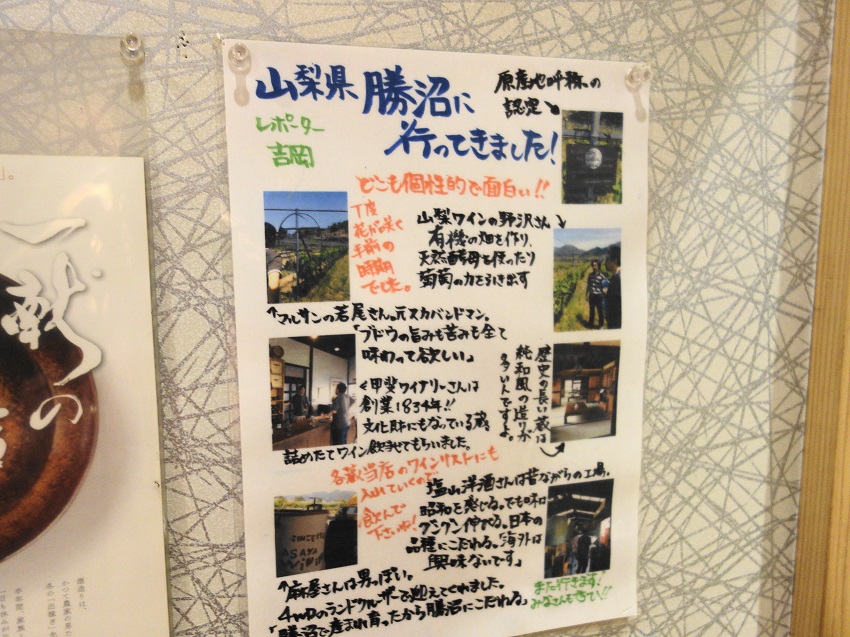 山梨県 勝沼に
行ってきました!
原産地呼称の
認定
レポーター
吉岡
どこも個性的で面白い!!
丁度
花が咲く
手前の
時期
でした。
山梨ワインの野沢さん
有機の畑を作り、
天然酵母を使ったり
葡萄の力を引き出す
↑マルサンの若尾さん。元スカバンドマン。
「ブドウの旨みも苦みも全て
味わって欲しい」
歴史の長い蔵は
純和風の造りが
多いんですよ。
甲斐ワイナリーさんは
創業1834年!!
文化財にもなっている蔵
詰めたてワイン飲ませてもらいました。
各蔵当店のワインリストにも
入れていくので
飲んで
下さいね!
塩山洋酒さんは昔ながらの工場。
昭和を感じる。でも味は
グングン伸びる。日本の
品種にこだわる。「海外は
興味ないです」
SINCE
ASAYA
↑麻屋さんは男っぽい。
4WDのランドクルーザーで迎えてくれました。
「勝沼で産まれ育ったから勝沼にこだわる」
また行きます!
みなさんも
一献の